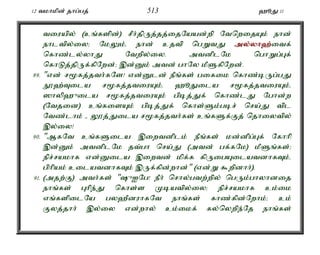 12 வமாமின் தாப்பத் 513 ஹூது 11
வரையில் (உங்களின்) சீர்திருத்தத்தையேயன்றி வேறெதையும் நான்
நாடவில்லை; மேலும், நான் உதவி பெறுவது அல்லாஹ்வைக்
கொண்டல்லாது வேறில்லை. அவனிடமே பொறுப்புக்
கொடுத்திருக்கிறேன்; இன்னும் அவன் பாலே மீளுகிறேன்.
89. "என் சமூகத்தவர்களே! என்னுடன் நீங்கள் பகைமை கொண்டிருப்பது
நூஹுடைய சமூகத்தவரையும், ஹூதுடைய சமூகத்தவரையும்,
ஸாலிஹுடைய சமூகத்தவரையும் பிடித்துக் கொண்டது போன்ற
(வேதனை) உங்களையும் பிடித்துக் கொள்ளும்படிச் செய்து விட
வேண்டாம் - லூத்துடைய சமூகத்தவர்கள் உங்களுக்குத் தொலைவில்
இல்லை!
90. "ஆகவே உங்களுடைய இறைவனிடம் நீங்கள் மன்னிப்புக் கோரி
இன்னும் அவனிடமே தவ்பா செய்து (அவன் பக்கமே) மீளுங்கள்;
நிச்சயமாக என்னுடைய இறைவன் மிக்க கிருபையுடையவனாகவும்,
பிரியம் உடையவனாகவும் இருக்கின்றான்" (என்று கூறினார்).
91. (அதற்கு) அவர்கள் "ஷுஐபே! நீர் சொல்பவற்றில் பெரும்பாலானதை
நாங்கள் புரிந்து கொள்ள முடியவில்லை; நிச்சயமாக உம்மை
எங்களிடையே பலஹீனராகவே நாங்கள் காண்கின்றோம்; உம்
குலத்தார் இல்லை என்றால் உம்மைக் கல்லெறிந்தே நாங்கள்